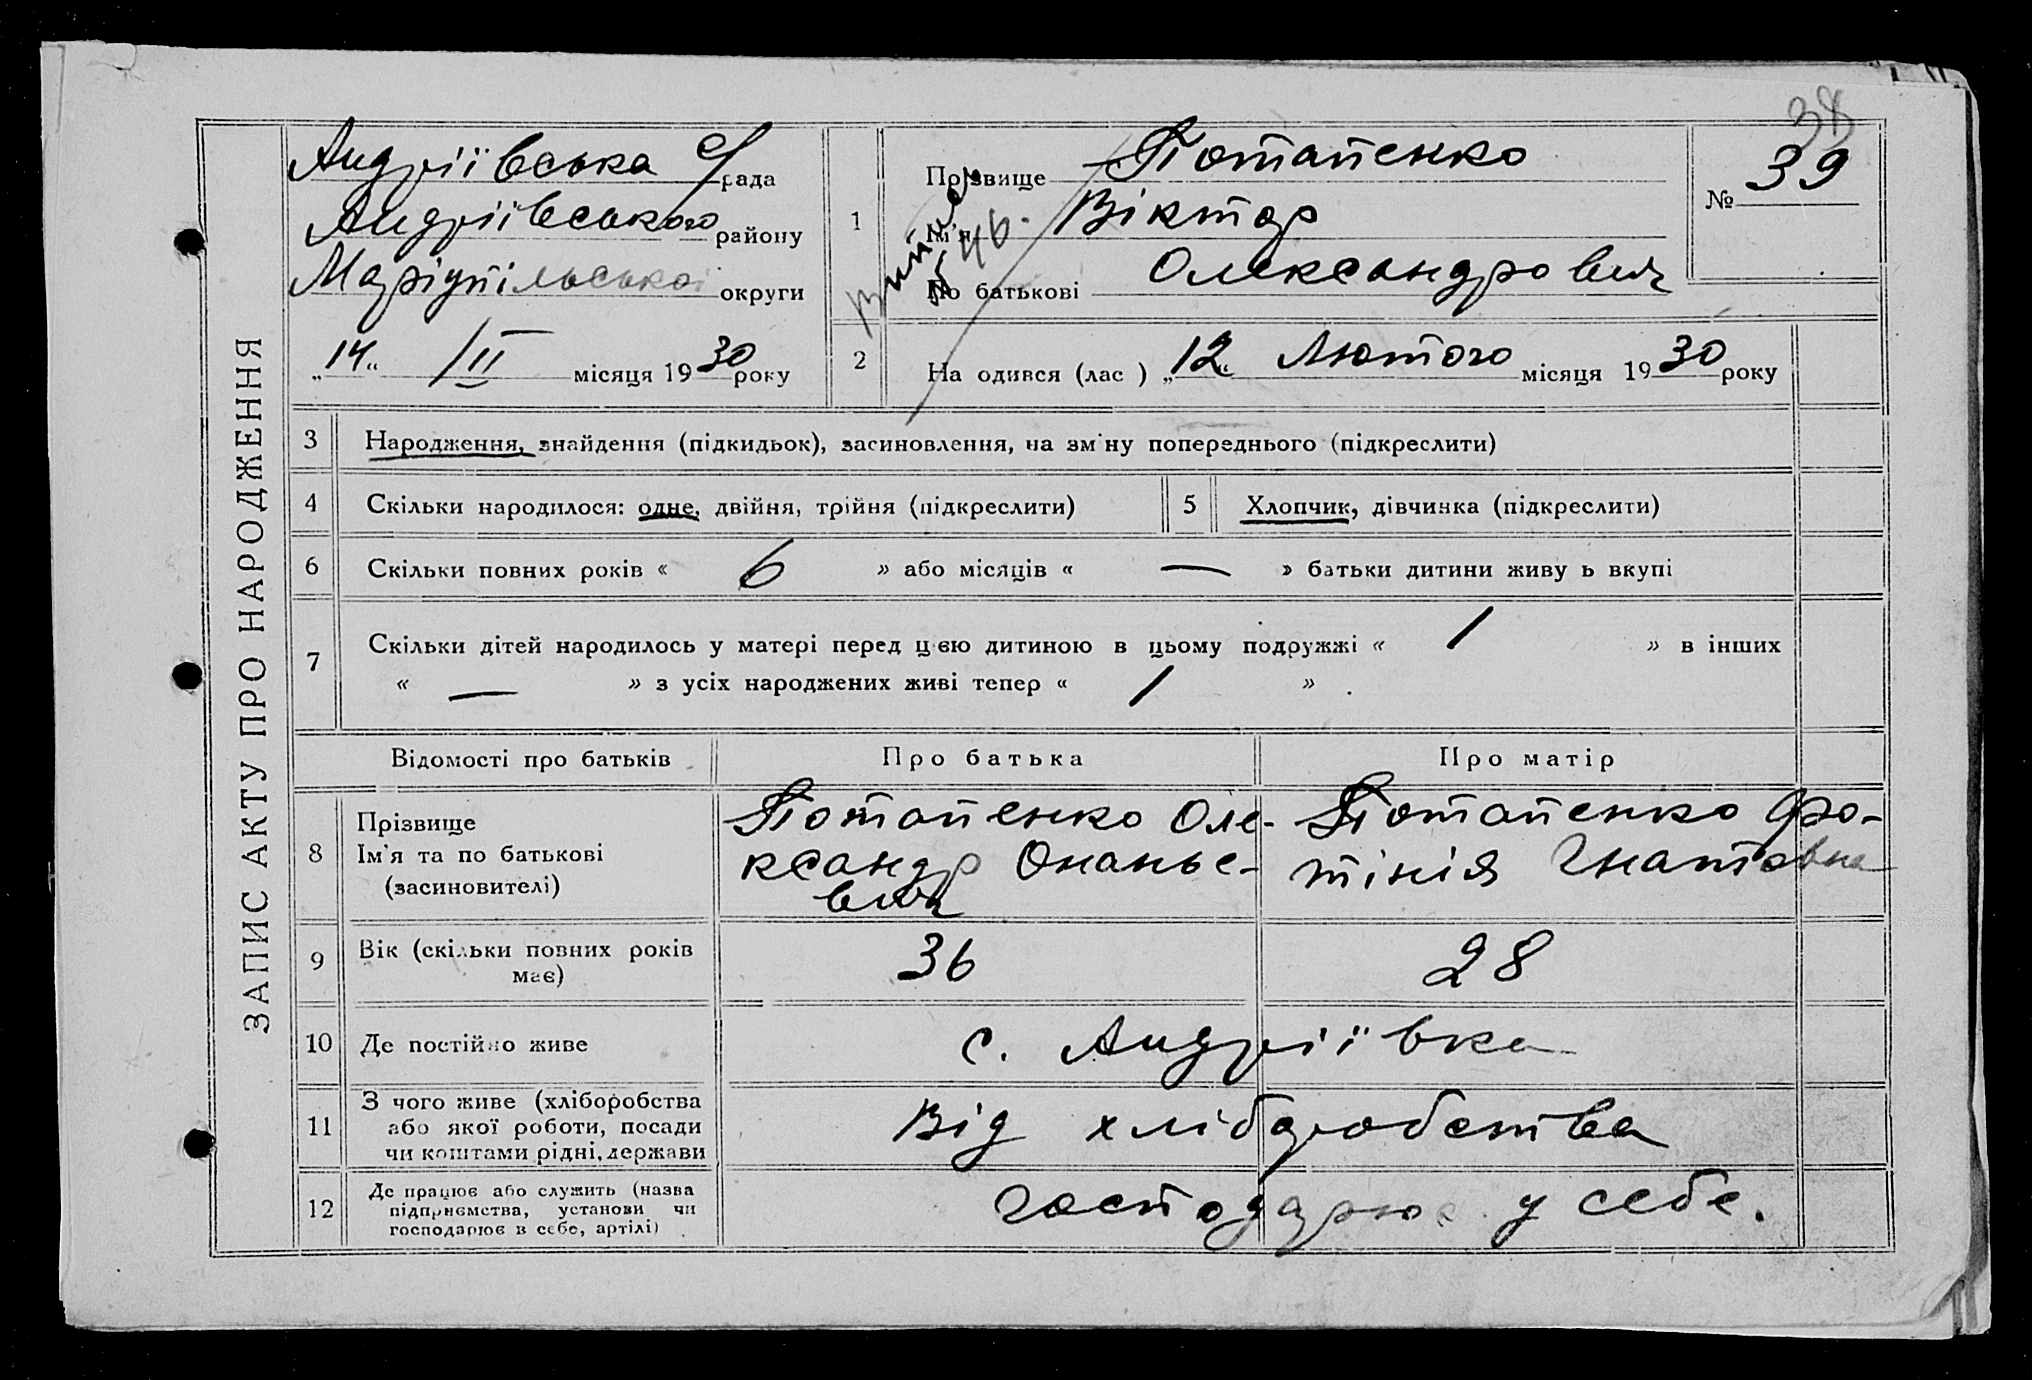 38
ЗАПИС АКТУ ПРО НАРОДЖЕННЯ
Андріївська с/рада
Андріївського району
Маріупільської округи
„14“ /II місяця 1930 року
1
Прізвище Потапенко
Ім'я Віктор
По батькові Олександрович
№ 39
2 На одився (лас ) „12“ Лютого місяця 1930 року
3 Народження, знайдення (підкидьок), засиновлення, на зм'ну попереднього (підкреслити)
4 Скільки народилося: одне, двійня, трійня (підкреслити) 5 Хлопчик, дівчинка (підкреслити)
6 Скільки повних років « 6 » або місяців « — » батьки дитини живу ь вкупі
7 Скільки дітей народилось у матері перед цією дитиною в цьому подружжі « 1 » в інших
« — » з усіх народжених живі тепер « 1 » .
Відомості про батьків Про батька Про матір
8 Прізвище
Ім'я та по батькові
(засиновителі)
Потапенко Оле-
ксандр Онаньє-
вич
Потапенко Фо-
тінія Гнатовна
9 Вік (скільки повних років
має)
36 28
10 Де постійно живе с. Андріївка
11 З чого живе (хліборобства
або якої роботи, посади
чи коштами рідні, держави
Від хліборобства
12 Де працює або служить (назва
підприємства, установи чи
господарює в себе, артілі)
господарює у себе.